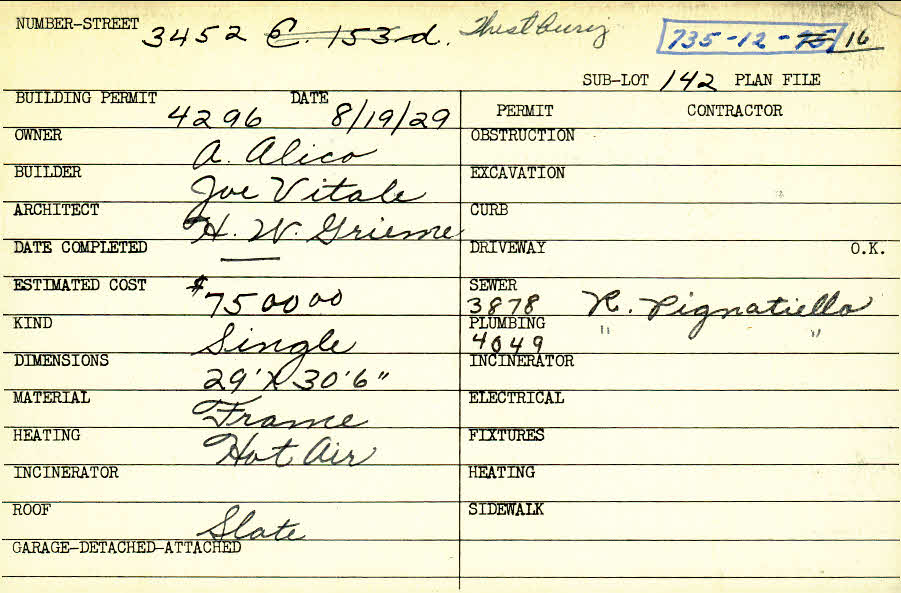 NUMBER-STREET 3452 E. 153d. 735-12-75/16
SUB-LOT 142 PLAN FILE
BUILDING PERMIT 4296 DATE 8/19/29 PERMIT CONTRACTOR
OWNER A. Alico OBSTRUCTION
BUILDER Joe Vitale EXCAVATION
ARCHITECT H. W. Grieme CURB
DATE COMPLETED — DRIVEWAY O.K.
ESTIMATED COST $7500 00 SEWER 3878 R. Pignatiello
KIND Single PLUMBING 4049 " "
DIMENSIONS 29'X30'6" INCINERATOR
MATERIAL Frame ELECTRICAL
HEATING Hot Air FIXTURES
INCINERATOR HEATING
ROOF Slate SIDEWALK
GARAGE-DETACHED-ATTACHED